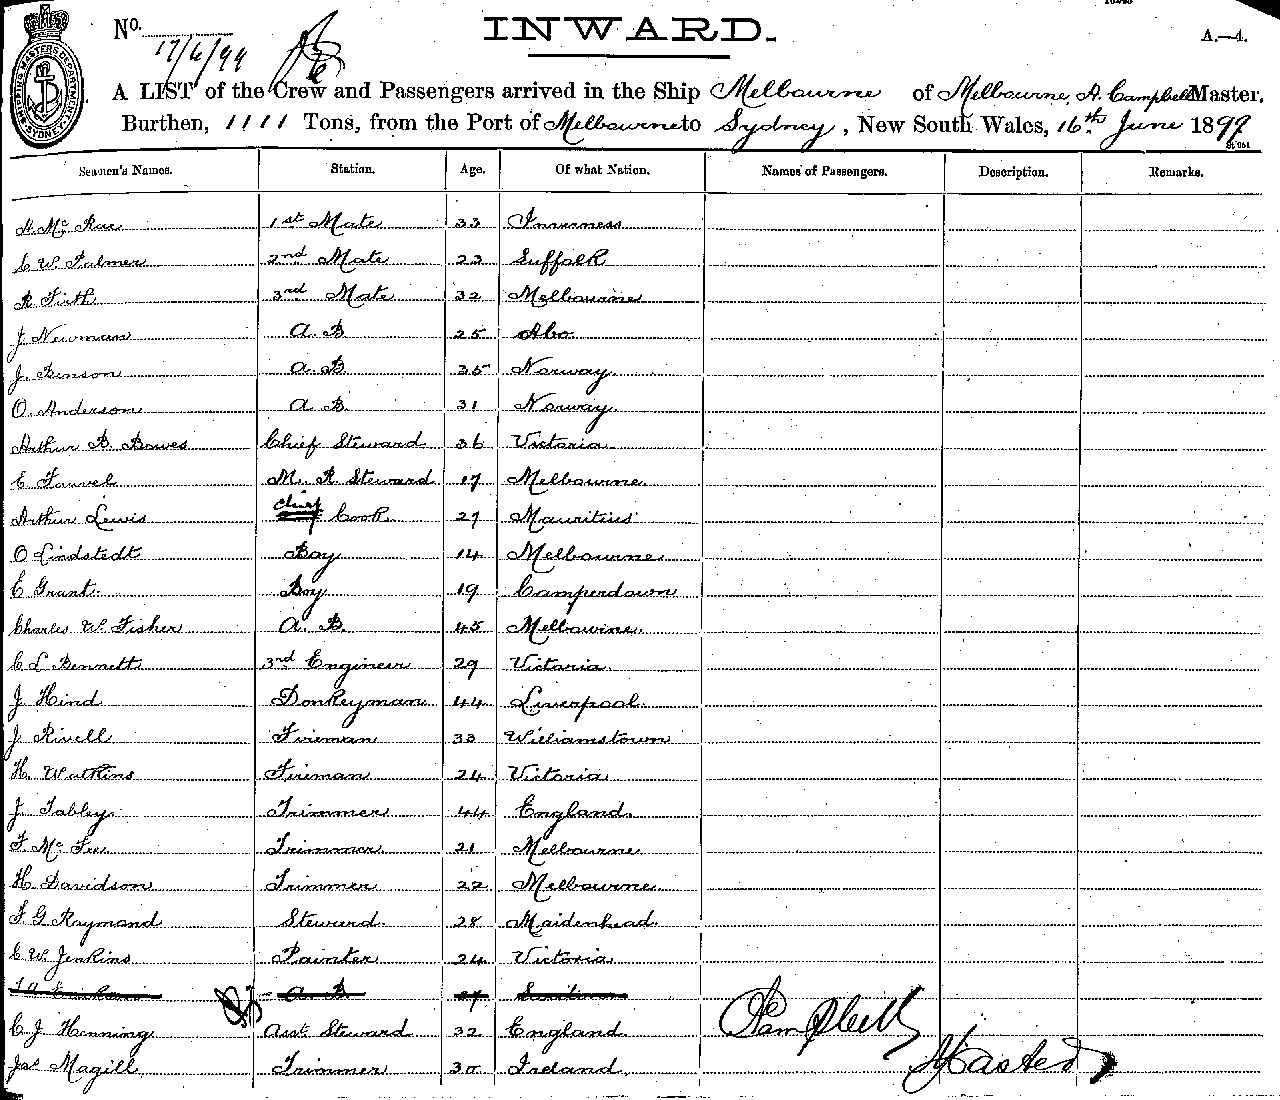 No. 17/6/99
INWARD.
A.—4.
A LIST of the Crew and Passengers arrived in the Ship Melbourne of Melbourne, A. Campbell Master,
Burthen, 1111 Tons, from the Port of Melbourne to Sydney, New South Wales, 16th June 1899
Seamen's Names. Station. Age. Of what Nation. Names of Passengers. Description. Remarks.
H. Mc Rae 1st Mate 33 Inverness
C W. Fulmer 2nd Mate 23 Suffolk
R Firth 3rd Mate 32 Melbourne
J Newman A. B 25 Abo
J. Benson A. B. 35 Norway
O. Anderson A B. 31 Norway
Arthur B. Bowes Chief Steward 36 Victoria
C Fauvel M. R Steward 17 Melbourne
Arthur Lewis Chief Cook 27 Mauritius
O Lindstedt Boy 14 Melbourne
C Grant Boy 19 Camperdown
Charles W Fisher A. B. 45 Melbourne
C L Bennett 3rd Engineer 29 Victoria
J Hind Donkeyman 44 Liverpool
J Rivell Fireman 33 Williamstown
H. Watkins Fireman 24 Victoria
J. Tabley Trimmer 44 England.
F. Mc Fee Trimmer 21 Melbourne
H. Davidson Trimmer 22 Melbourne
F. G Raymond Steward 28 Maidenhead
C W. Jenkins Painter 24 Victoria
A B
C. J Henning Asst Steward 32 England
Jas Magill Trimmer 30 Ireland
ACampbell
Master